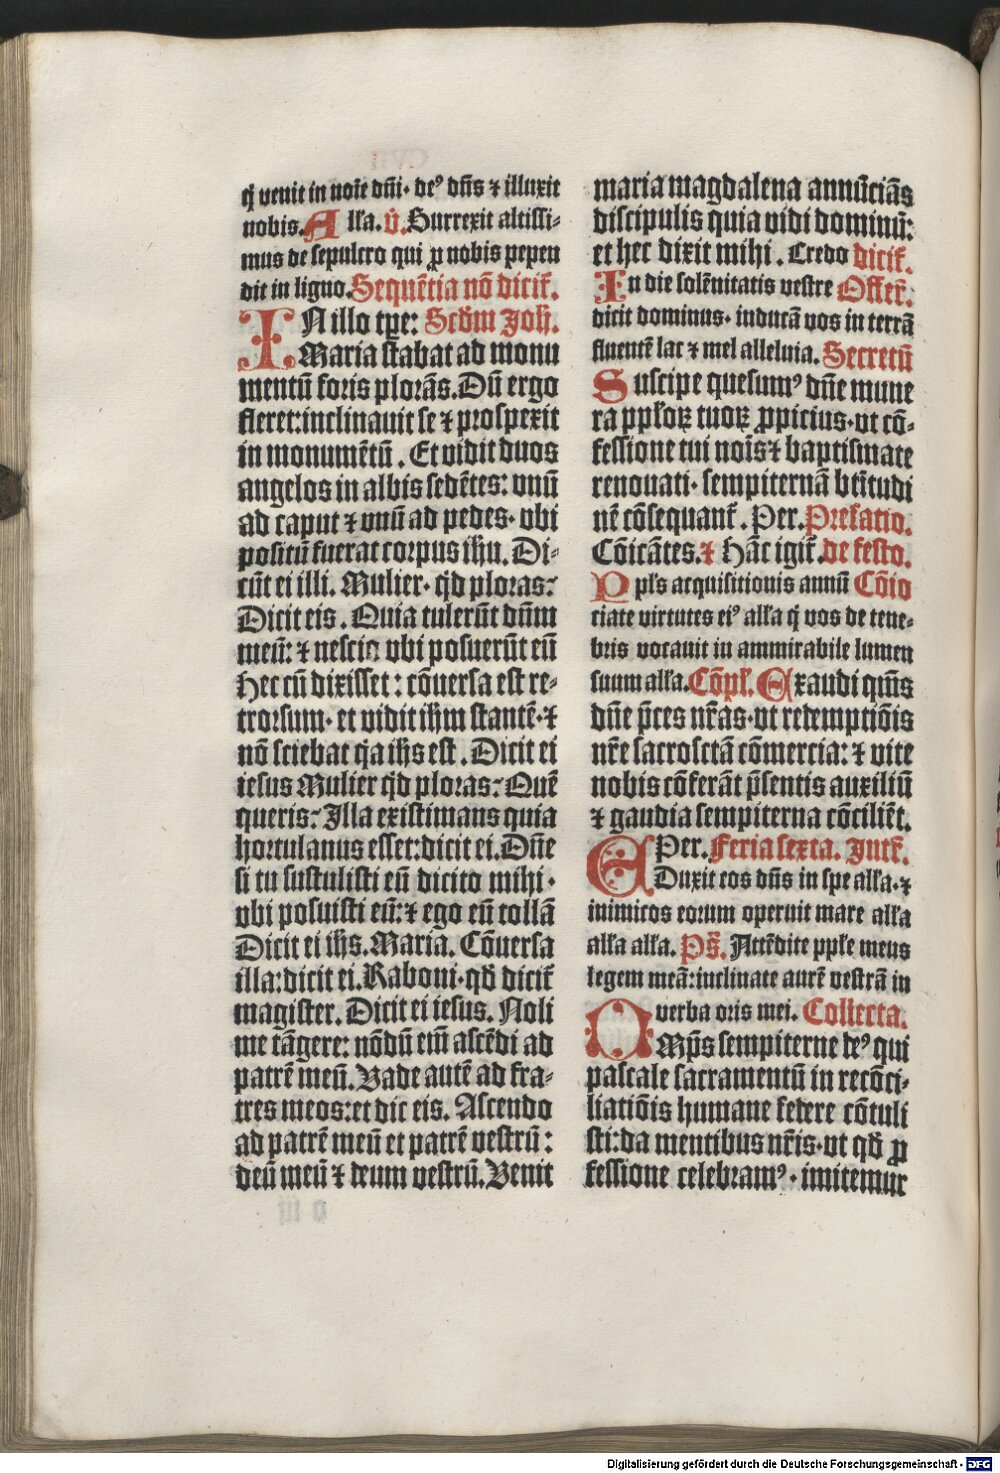 q̃ venit in noīe dn̄i· deꝰ dn̄s ⁊ illuxit
nobis. Alla. v̊. Surrexit altissi-
mus de sepulcro qui ꝓ nobis pepen
dit in ligno. Sequētia nō dicit̄.
IN illo tp̄e: Scd̄m Joh̄.
Maria stabat ad monu
mentū foris plorās. Dū ergo
fleret: inclinauit se ⁊ prospexit
in monumētū. Et vidit duos
angelos in albis sedētes: vnū
ad caput ⁊ vnū ad pedes· vbi
positū fuerat corpus ih̄u. Di-
cūt ei illi. Mulier· qd̄ ploras:
Dicit eis. Quia tulerūt dn̄m
meū: ⁊ nescio vbi posuerūt eū
Hec cū dixisset: cōuersa est re-
trorsum· et vidit ih̄m stantē·⁊
nō sciebat q̄a ih̄s est. Dicit ei
iesus Mulier qd̄ ploras: Quē
queris: Illa existimans quia
hortulanus esset: dicit ei. Dn̄e
si tu sustulisti eū dicito mihi·
vbi posuisti eū: ⁊ ego eū tollā
Dicit ei ih̄s. Maria. Cōuersa
illa: dicit ei. Raboni· qd̄ dicit̄
magister. Dicit ei iesus. Noli
me tāgere: nōdū em̄ ascēdi ad
patrē meū. Vade autē ad fra-
tres meos: et dic eis. Ascendo
ad patrē meū et patrē vestrū:
deū meū ⁊ deum vestrū. Venit
maria magdalena annūciās
discipulis quia vidi dominū:
et hec dixit mihi. Credo dicit̄.
In die solēnitatis vestre Offer̄.
dicit dominus· inducā vos in terrā
fluentē lac ⁊ mel alleluia. Secretū
Suscipe quesumꝰ dn̄e mune
ra ppl̄oꝝ tuoꝝ ꝓpicius· vt cō-
fessione tui noīs ⁊ baptismate
renouati· sempiternā bt̄itudi
nē cōsequant̄. Per. Prefatio.
Cōicātes. ⁊ Hāc igit̄. de festo.
Ppl̄s acquisitionis annū Cōio
ciate virtutes eiꝰ all̄a q̄ vos de tene-
bris vocauit in ammirabile lumen
suum all̄a. Cōpl̄. Exaudi qm̄s
dn̄e p̄ces nr̄as· vt redemptiōis
nr̄e sacrosctā cōmercia: ⁊ vite
nobis cōferāt p̄sentis auxiliū
⁊ gaudia sempiterna cōciliēt.
Per. Feria sexta. Intr̄.
EDuxit eos dn̄s in spe all̄a·⁊
inimicos eorum operuit mare all̄a
all̄a all̄a. Ps̄. Attēdite ppl̄e meus
legem meā: inclinate aurē vestrā in
verba oris mei. Collecta.
OMp̄s sempiterne deꝰ qui
pascale sacramentū in recōci-
liatiōis humane federe cōtuli
sti: da mentibus nr̄is· vt qd̄ ꝓ
fessione celebramꝰ· imitemur
Digitalisierung gefördert durch die Deutsche Forschungsgemeinschaft - DFG